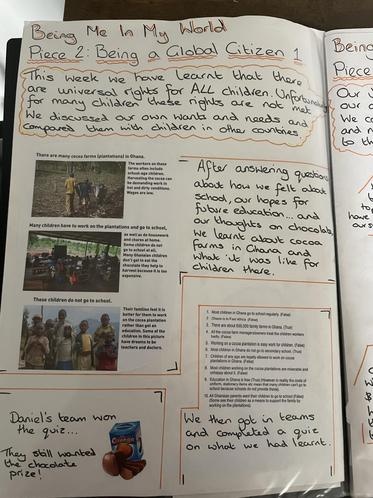 Being Me In My World
Piece 2: Being a Global Citizen 1
This week we have learnt that there
are universal rights for ALL children. Unfortunately
for many children these rights are not met.
We discussed our own wants and needs and
compared them with children in other countries.
There are many cocoa farms (plantations) in Ghana.
The workers on these
farms often include
school-age children.
Harvesting the cocoa can
be demanding work in
hot and dirty conditions.
Wages are low.
Many children have to work on the plantations and go to school,
as well as do housework
and chores at home.
Some children do not
go to school at all.
Many Ghanaian children
don't get to eat the
chocolate they help to
harvest because it is too
expensive.
These children do not go to school.
Their families feel it is
better for them to work
on the cocoa plantation
rather than get an
education. Some of the
children in this picture
have dreams to be
teachers and doctors.
After answering questions
about how we felt about
school, our hopes for
future education... and
our thoughts on chocolate,
we learnt about cocoa
farms in Ghana and
what it was like for
children there.
1. Most children in Ghana go to school regularly. (False)
2. Ghana is in East Africa. (False)
3. There are about 600,000 family farms in Ghana. (True)
4. All the cocoa farm managers/owners treat the children workers
badly. (False)
5. Working on a cocoa plantation is easy work for children. (False)
6. Most children in Ghana do not go to secondary school. (True)
7. Children of any age are legally allowed to work on cocoa
plantations in Ghana. (False)
8. Most children working on the cocoa plantations are miserable and
unhappy about it. (False)
9. Education in Ghana is free (True) (However in reality the costs of
uniform, stationery items etc mean that many children can't go to
school because schools do not provide these).
10. All Ghanaian parents want their children to go to school (False)
(Some see their children as a means to support the family by
working on the plantations).
Daniel's team won
the quiz...
They still wanted
the chocolate
prize!
We then got in teams
and completed a quiz
on what we had learnt.
Being
Piece